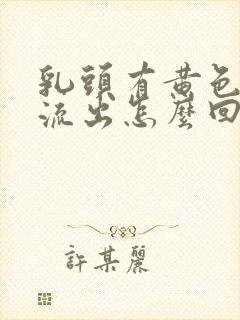 乳頭有黃色
流出怎麼回
許某麗